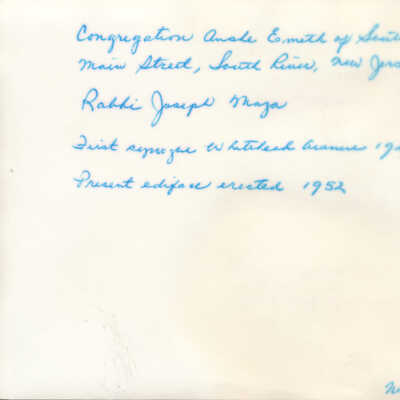 Congregation Anshe Emeth of South
Main Street, South River, New Jers
Rabbi Joseph Maza
First synogue Whitehead Avenue 19
Present ediface erected 1952